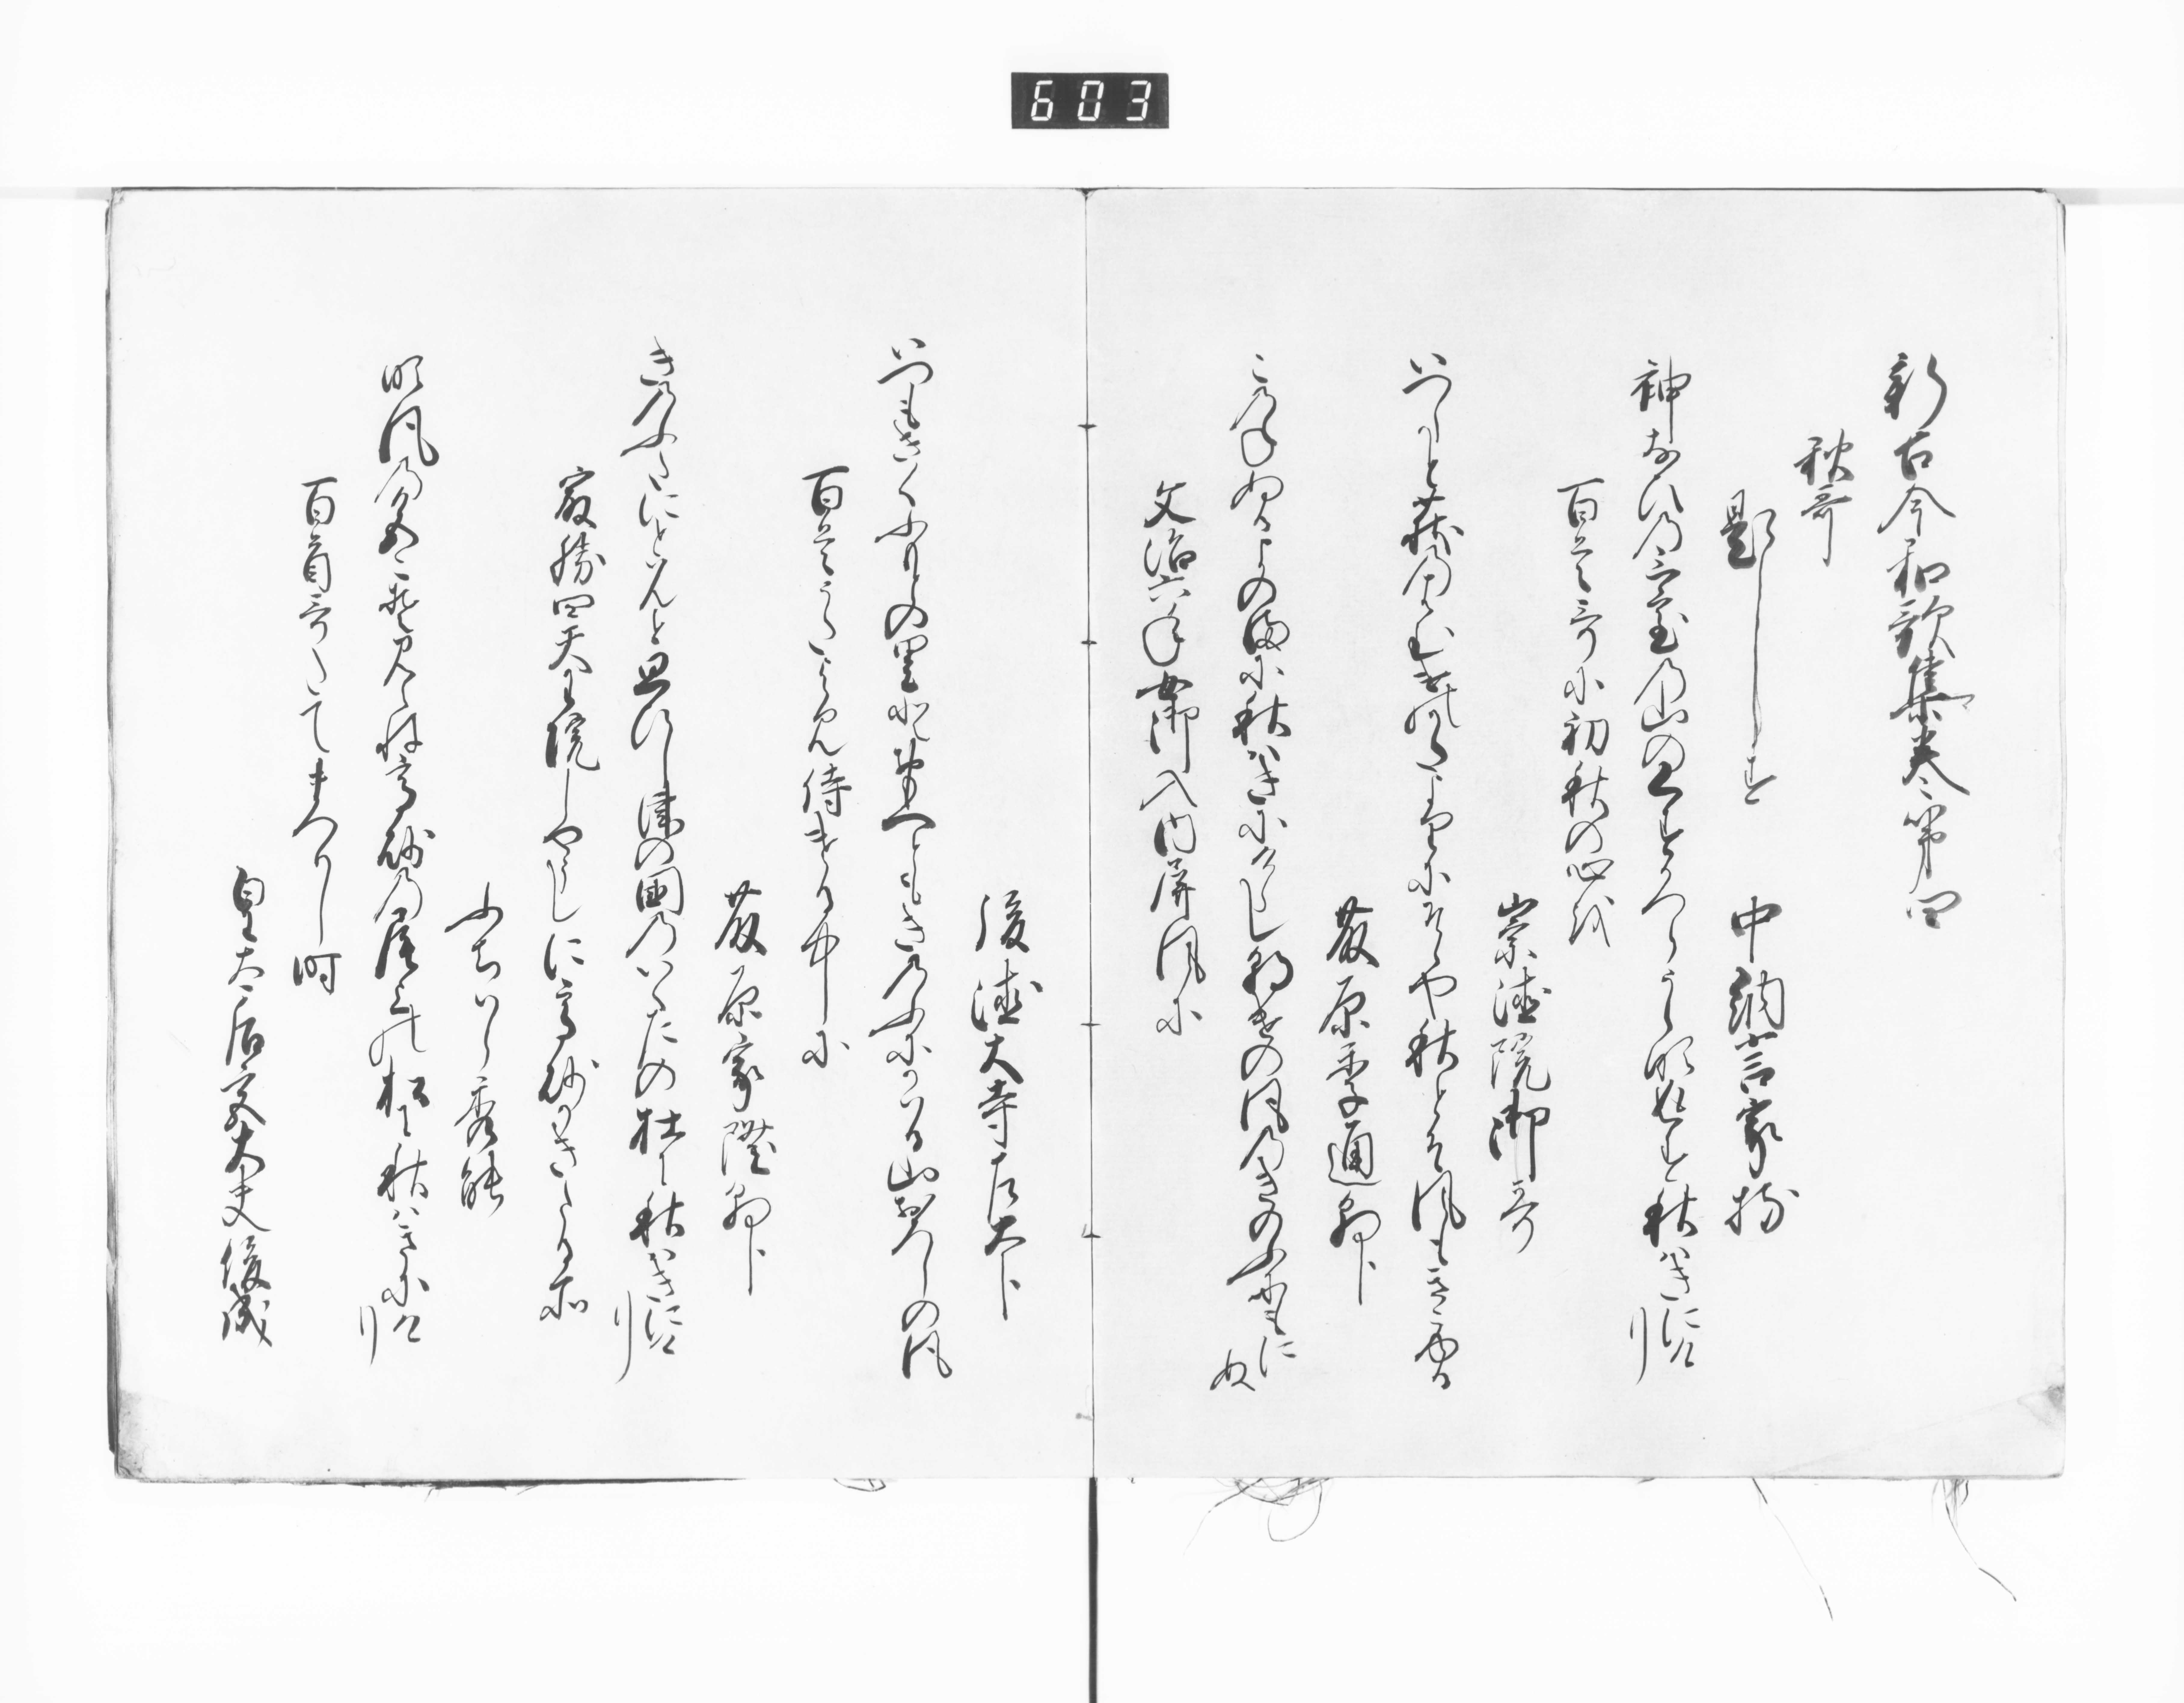 603
新古今和歌集巻第四
秋哥
題しらす　中納言家持
神なひのみ室の山のくすかつらうら吹返す秋はきにけり
百首哥に初秋の心を
崇徳院御哥
いつしかと荻の葉むけのかたよりにそゝや秋とそ風もきこゆる
藤原季通朝臣
このねぬるよのまに秋はきにけらし朝けの風のきのふにもにぬ
文治六年女御入内屏風に
後徳大寺左大臣
いつもきくふもとの里とおもへともきのふにかはる山おろしの風
百首うたよみ侍ける中に
藤原家隆朝臣
きのふたにとはんと思ひし津の国のいくたの杜に秋はきにけり
最勝四天王院しやうしに高砂かきたる所
ふちはら秀能
吹風の色こそ見えね高砂の尾上の松に秋はきにけり
百首哥たてまつりし時
皇太后宮大夫俊成